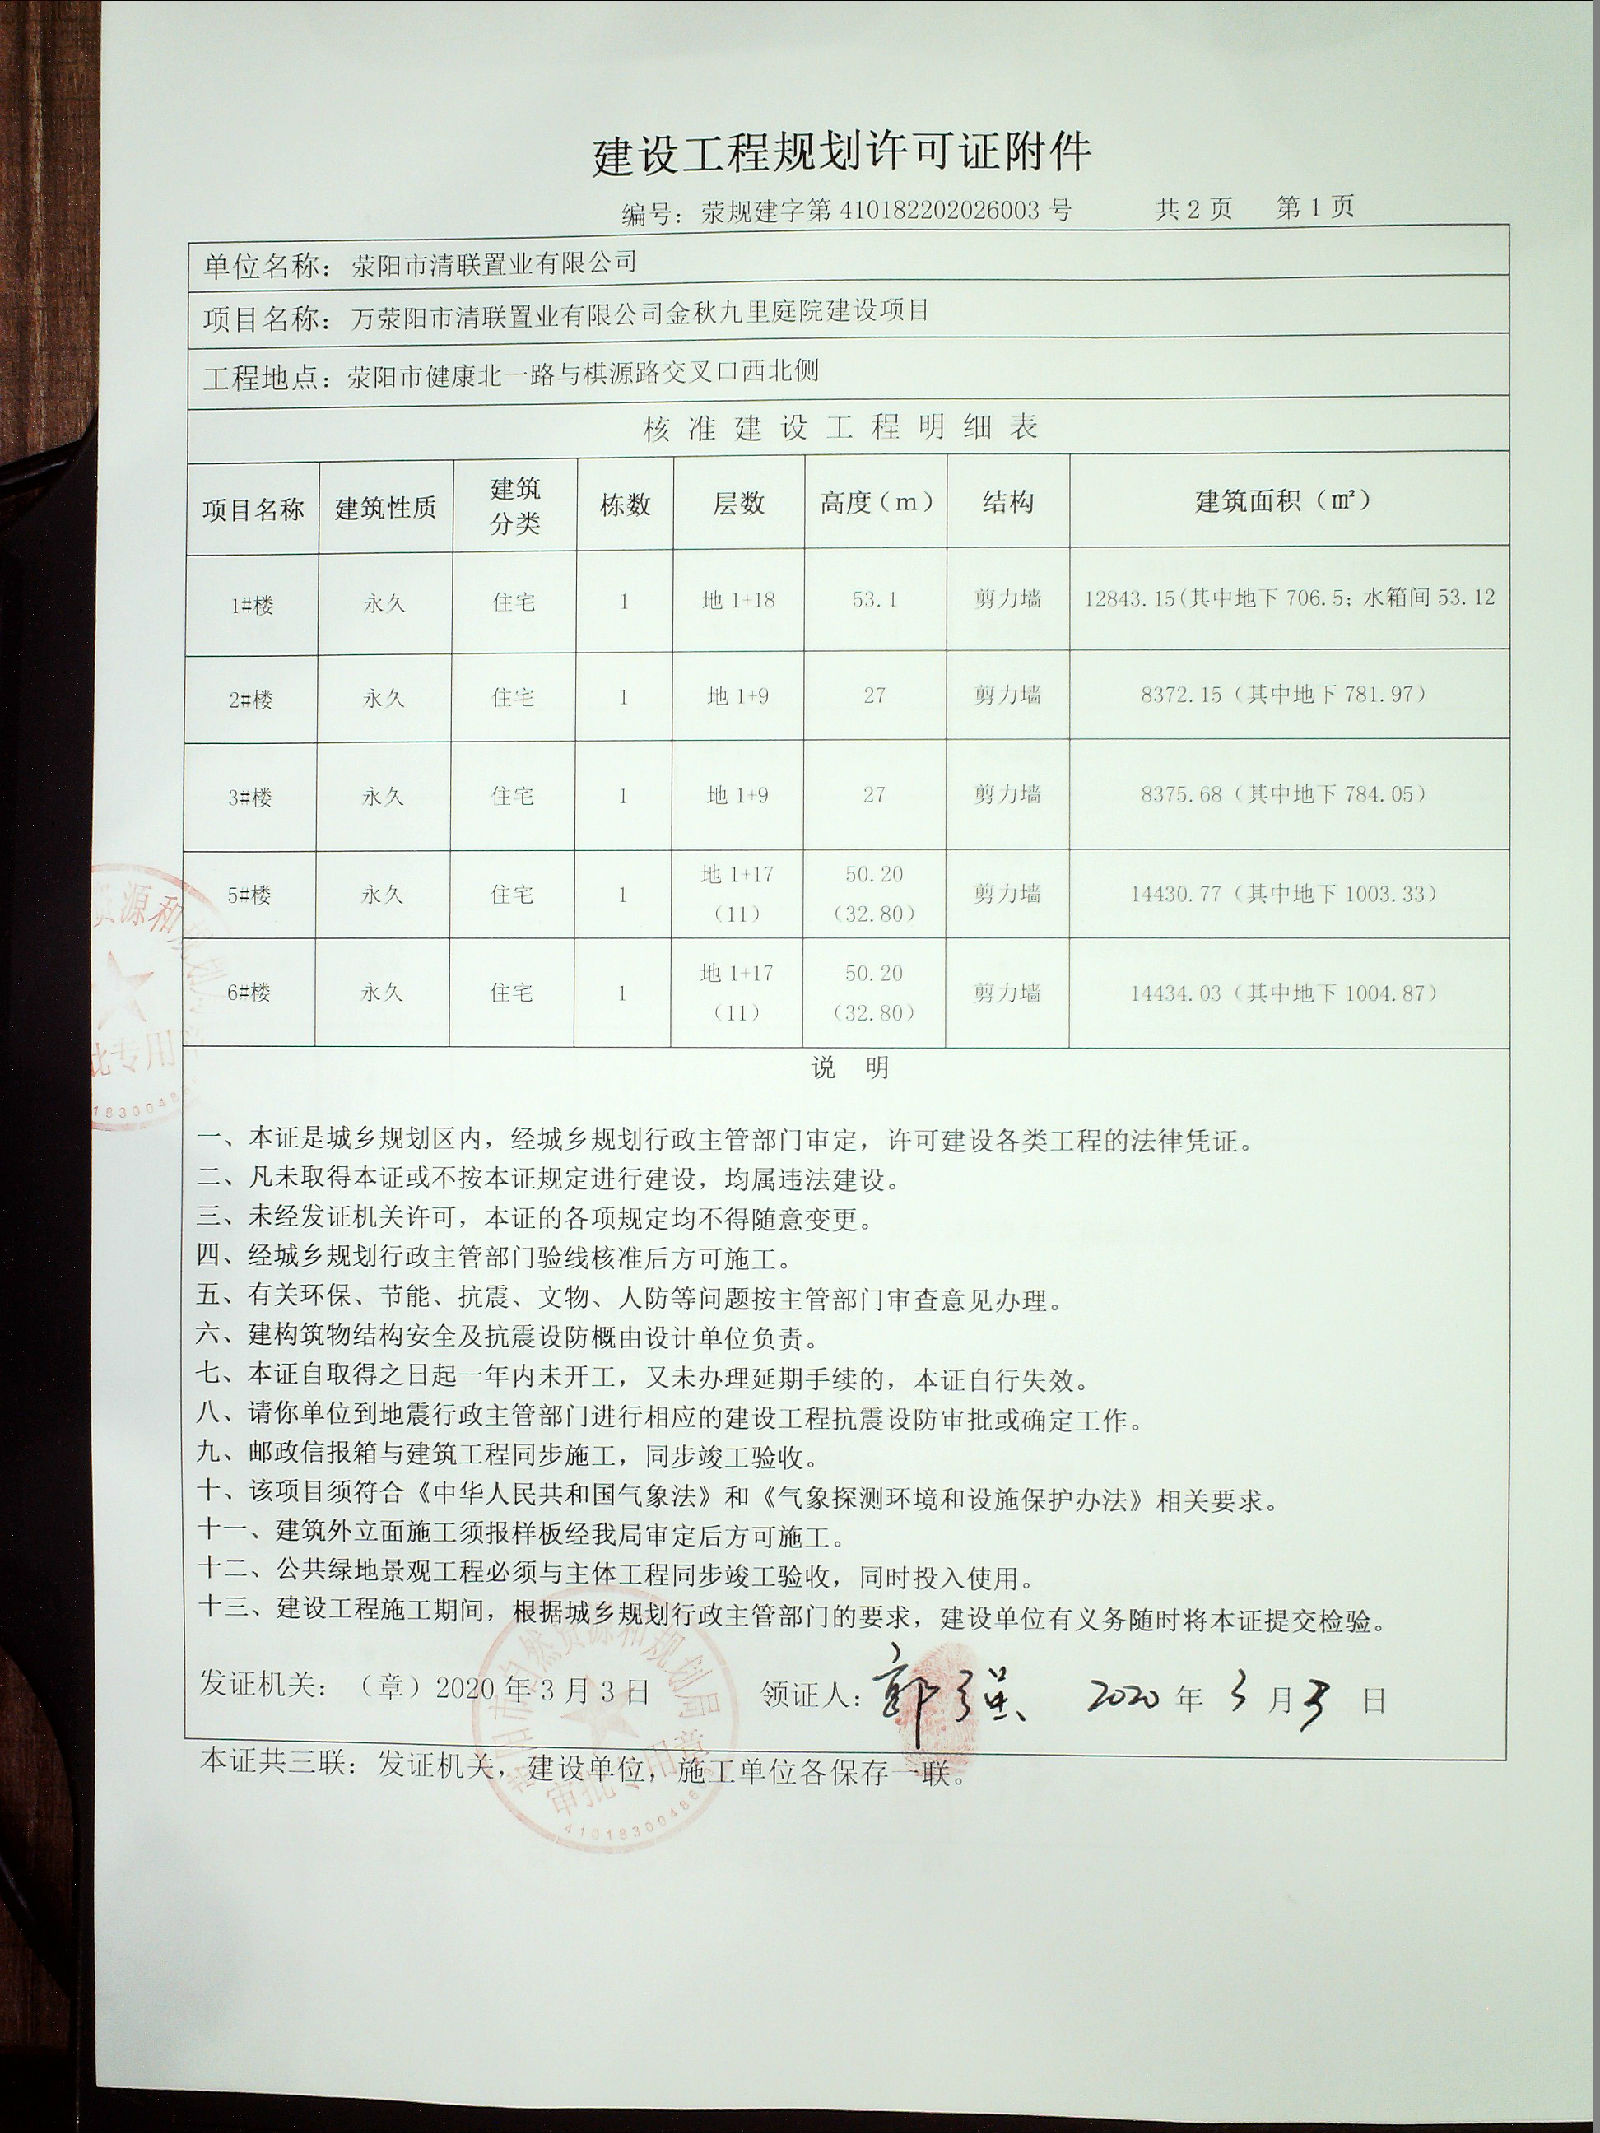 建设工程规划许可证附件
编号：荥规建字第 410182202026003 号 共 2 页 第 1 页
单位名称：荥阳市清联置业有限公司
项目名称：万荥阳市清联置业有限公司金秋九里庭院建设项目
工程地点：荥阳市健康北一路与棋源路交叉口西北侧
核准建设工程明细表
项目名称 建筑性质 建筑分类 栋数 层数 高度（m） 结构 建筑面积（㎡）
1#楼 永久 住宅 1 地 1+18 53.1 剪力墙 12843.15(其中地下 706.5；水箱间 53.12
2#楼 永久 住宅 1 地 1+9 27 剪力墙 8372.15（其中地下 781.97）
3#楼 永久 住宅 1 地 1+9 27 剪力墙 8375.68（其中地下 784.05）
5#楼 永久 住宅 1 地 1+17（11） 50.20（32.80） 剪力墙 14430.77（其中地下 1003.33）
6#楼 永久 住宅 1 地 1+17（11） 50.20（32.80） 剪力墙 14434.03（其中地下 1004.87）
说 明
一、本证是城乡规划区内，经城乡规划行政主管部门审定，许可建设各类工程的法律凭证。
二、凡未取得本证或不按本证规定进行建设，均属违法建设。
三、未经发证机关许可，本证的各项规定均不得随意变更。
四、经城乡规划行政主管部门验线核准后方可施工。
五、有关环保、节能、抗震、文物、人防等问题按主管部门审查意见办理。
六、建构筑物结构安全及抗震设防概由设计单位负责。
七、本证自取得之日起一年内未开工，又未办理延期手续的，本证自行失效。
八、请你单位到地震行政主管部门进行相应的建设工程抗震设防审批或确定工作。
九、邮政信报箱与建筑工程同步施工，同步竣工验收。
十、该项目须符合《中华人民共和国气象法》和《气象探测环境和设施保护办法》相关要求。
十一、建筑外立面施工须报样板经我局审定后方可施工。
十二、公共绿地景观工程必须与主体工程同步竣工验收，同时投入使用。
十三、建设工程施工期间，根据城乡规划行政主管部门的要求，建设单位有义务随时将本证提交检验。
发证机关：（章）2020 年 3 月 3 日 领证人：郭强 2020 年 3 月 3 日
本证共三联：发证机关，建设单位，施工单位各保存一联。
阳市自然资源和规划局
审批专用章
源和规划
批专用